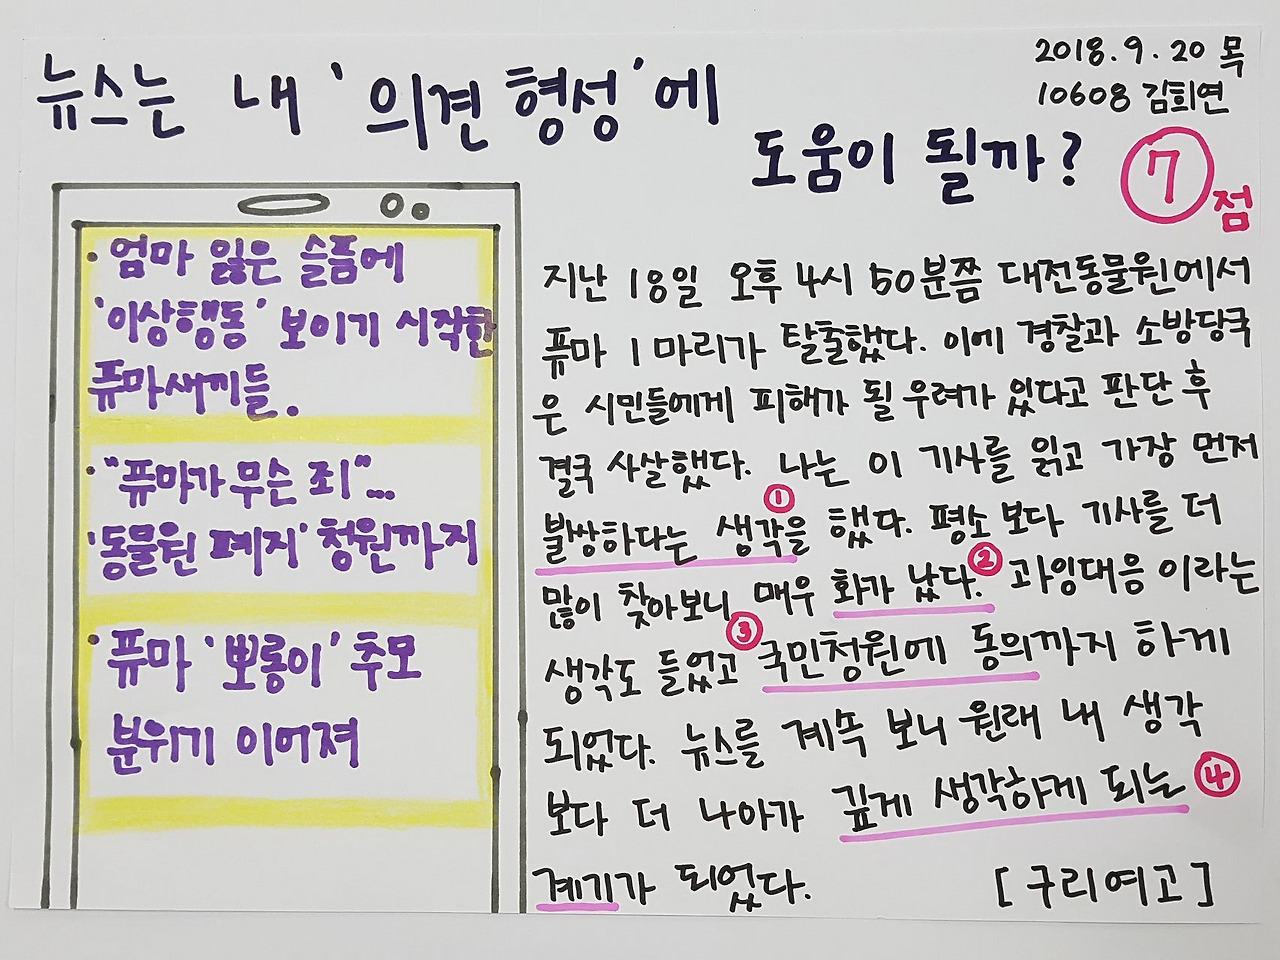 2018.9.20 목
10608 김희연
뉴스는 내 '의견 형성'에
도움이 될까?
7점
· 엄마 잃은 슬픔에
'이상행동' 보이기 시작한
퓨마새끼들.
· "퓨마가 무슨 죄"...
'동물원 폐지' 청원까지
· 퓨마 '뽀롱이' 추모
분위기 이어져
지난 18일 오후 4시 50분쯤 대전동물원에서
퓨마 1마리가 탈출했다. 이에 경찰과 소방당국
은 시민들에게 피해가 될 우려가 있다고 판단 후
결국 사살했다. 나는 이 기사를 읽고 가장 먼저
①
불쌍하다는 생각을 했다. 평소 보다 기사를 더
많이 찾아보니 매우 화가 났다. ② 과잉대응 이라는
생각도 들었고 ③ 국민청원에 동의까지 하게
되었다. 뉴스를 계속 보니 원래 내 생각
보다 더 나아가 깊게 생각하게 되는 ④
계기가 되었다. [구리여고]